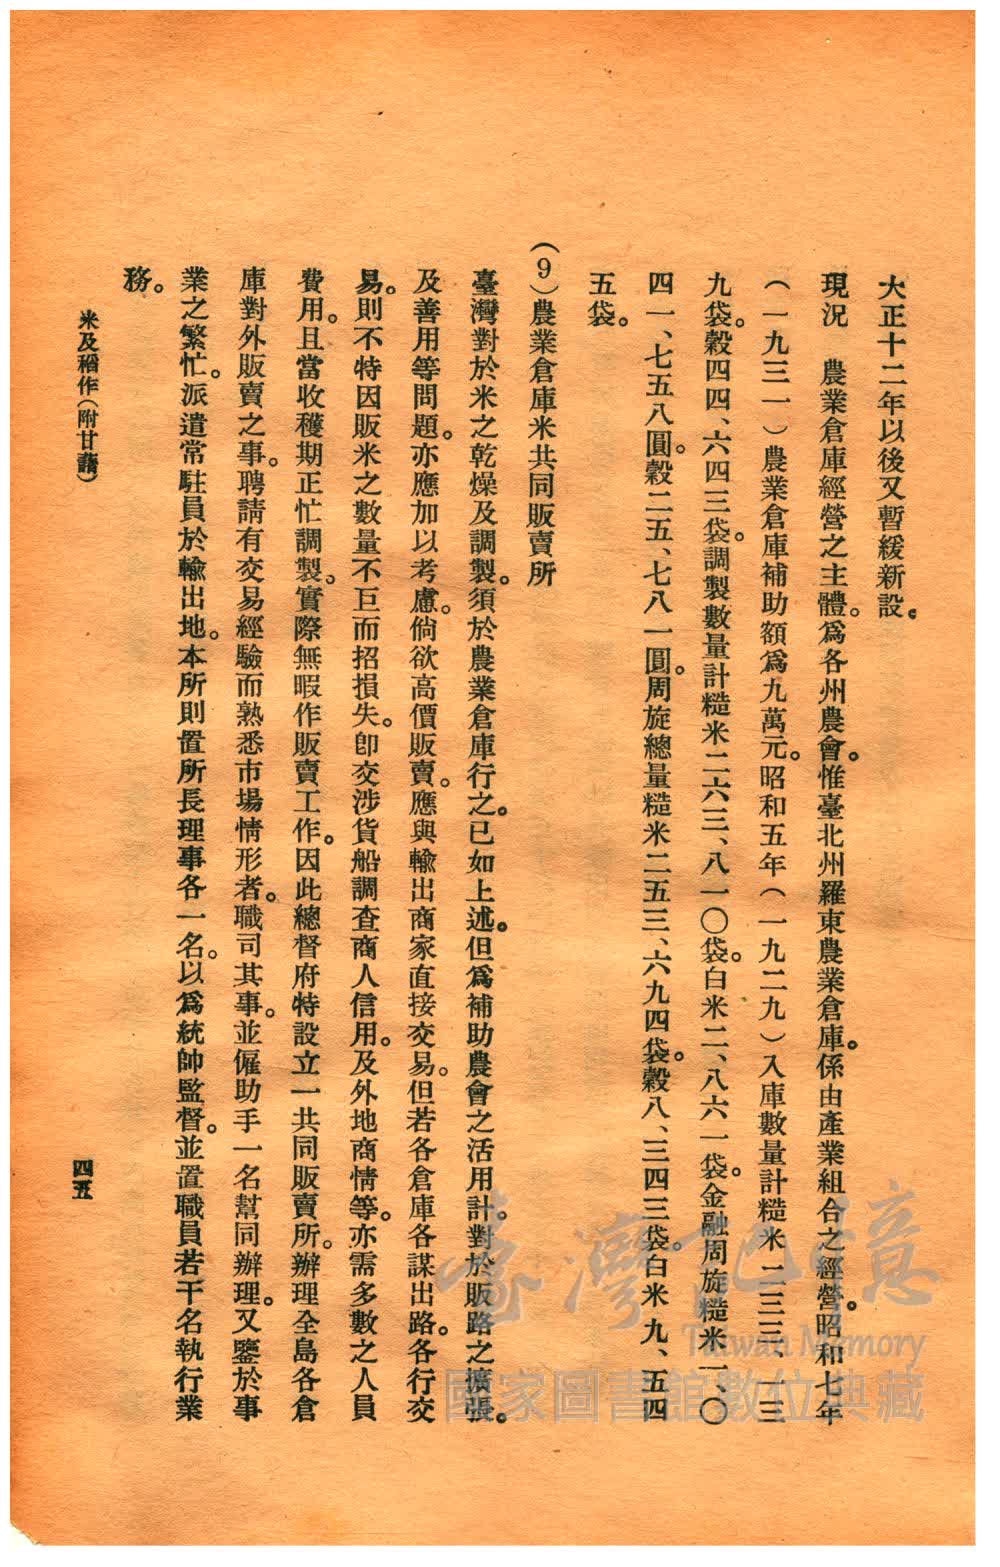 大正十二年以後又暫緩新設。
現況　農業倉庫經營之主體。爲各州農會。惟臺北州羅東農業倉庫。係由產業組合之經營。昭和七年
（一九三一）農業倉庫補助額爲九萬元。昭和五年（一九二九）入庫數量計糙米二三三、一三
九袋。穀四四、六四三袋。調製數量計糙米二六三、八一〇袋。白米二、八六一袋。金融周旋糙米一、〇
四一、七五八圓。穀二五、七八一圓。周旋總量糙米二五三、六九四袋。穀八、三四三袋。白米九、五四
五袋。
（9）農業倉庫米共同販賣所
臺灣對於米之乾燥及調製。須於農業倉庫行之。已如上述。但爲補助農會之活用計。對於販路之擴張。
及善用等問題。亦應加以考慮。倘欲高價販賣。應與輸出商家直接交易。但若各倉庫各謀出路。各行交
易。則不特因販米之數量不巨而招損失。卽交涉貨船調查商人信用。及外地商情等。亦需多數之人員
費用。且當收穫期正忙調製。實際無暇作販賣工作。因此總督府特設立一共同販賣所。辦理全島各倉
庫對外販賣之事。聘請有交易經驗而熟悉市場情形者。職司其事。並僱助手一名幫同辦理。又鑒於事
業之繁忙。派遣常駐員於輸出地。本所則置所長理事各一名。以爲統帥監督。並置職員若干名執行業
務。
米及稻作（附甘藷）
四五
臺灣記憶
Taiwan Memory
國家圖書館數位典藏